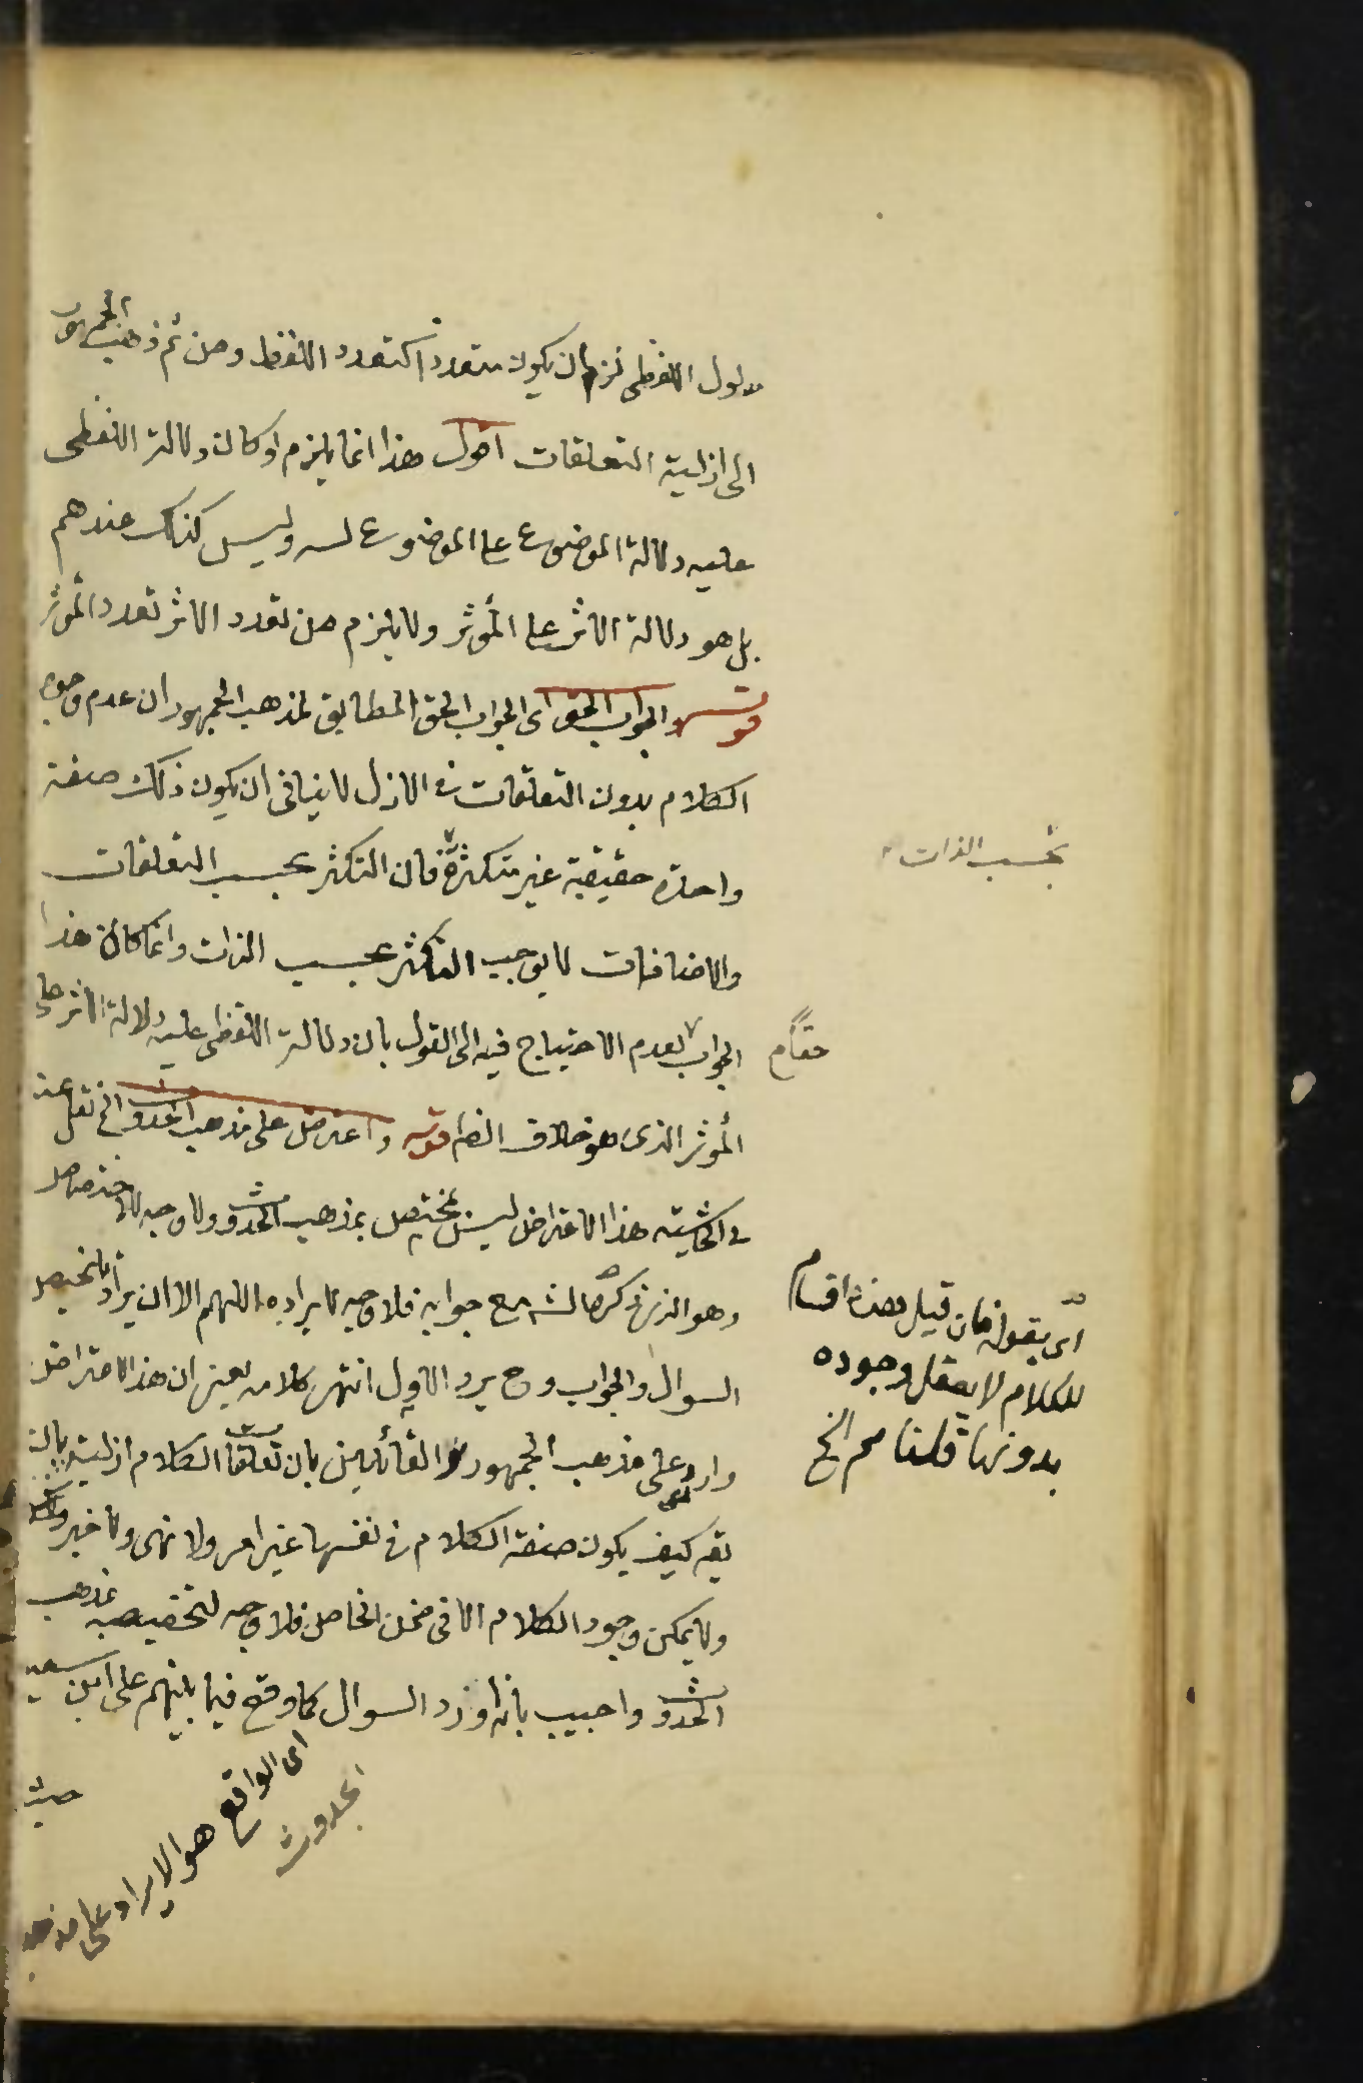 مدلول اللفظى لزم ان يكون متعددا كتعدد اللفظ ومن ثم ذهب الجمهور
الى ازلية التعلقات اقول هذا انما يلزم لو كان دلالة اللفظى
عليه دلالة الموضوع على الموضوع له وليس كذلك عندهم
بل هو دلالة الاثر على المؤثر ولا يلزم من تعدد الاثر تعدد المؤثر
قوله والجواب الحق اى الجواب الحق المطابق لمذهب الجمهور ان عدم وجود
الكلام بدون التعلقات فى الازل لا ينافى ان يكون ذلك صفة
واحدة حقيقية غير متكثرة فان التكثر بحسب التعلقات
بحسب الذات
والاضافات لا يوجب التكثر بحسب الذات وانما كان هذا
الجواب لعدم الاحتياج فيه الى القول بان دلالة اللفظى عليه دلالة الاثر على
حقا م
المؤثر الذى هو خلاف الظ قوله واعترض على مذهب الحدوث الخ نقل عنه
فى الحاشية هذا الاعتراض ليس بمختص بمذهب الحدوث ولا وجه للاختصاص
وهو الذى ذكره الش مع جوابه فلا وجه لايراده اللهم الا ان يراد تلخيص
السوال والجواب وح يرد الاول انتهى كلامه يعنى ان هذا الاعتراض
اى بقوله فان قيل هذه اقسام
للكلام لا يعقل وجوده
بدونها قلنا مم الخ
وارد على مذهب الجمهور القائلين بان تعلقات الكلام ازلية بان
يقه كيف يكون صفة الكلام فى نفسها غير امر ولا نهى ولا خبر
ولا يمكن وجود الكلام الا فى ضمن الخاص فلا وجه لتخصيصه بمذهب
الحدوث واجيب بانه اورد السوال كما وقع فيما بينهم على ابن سعيد
حيث
اى الواقع هو الايراد على مذهب
الحدوث